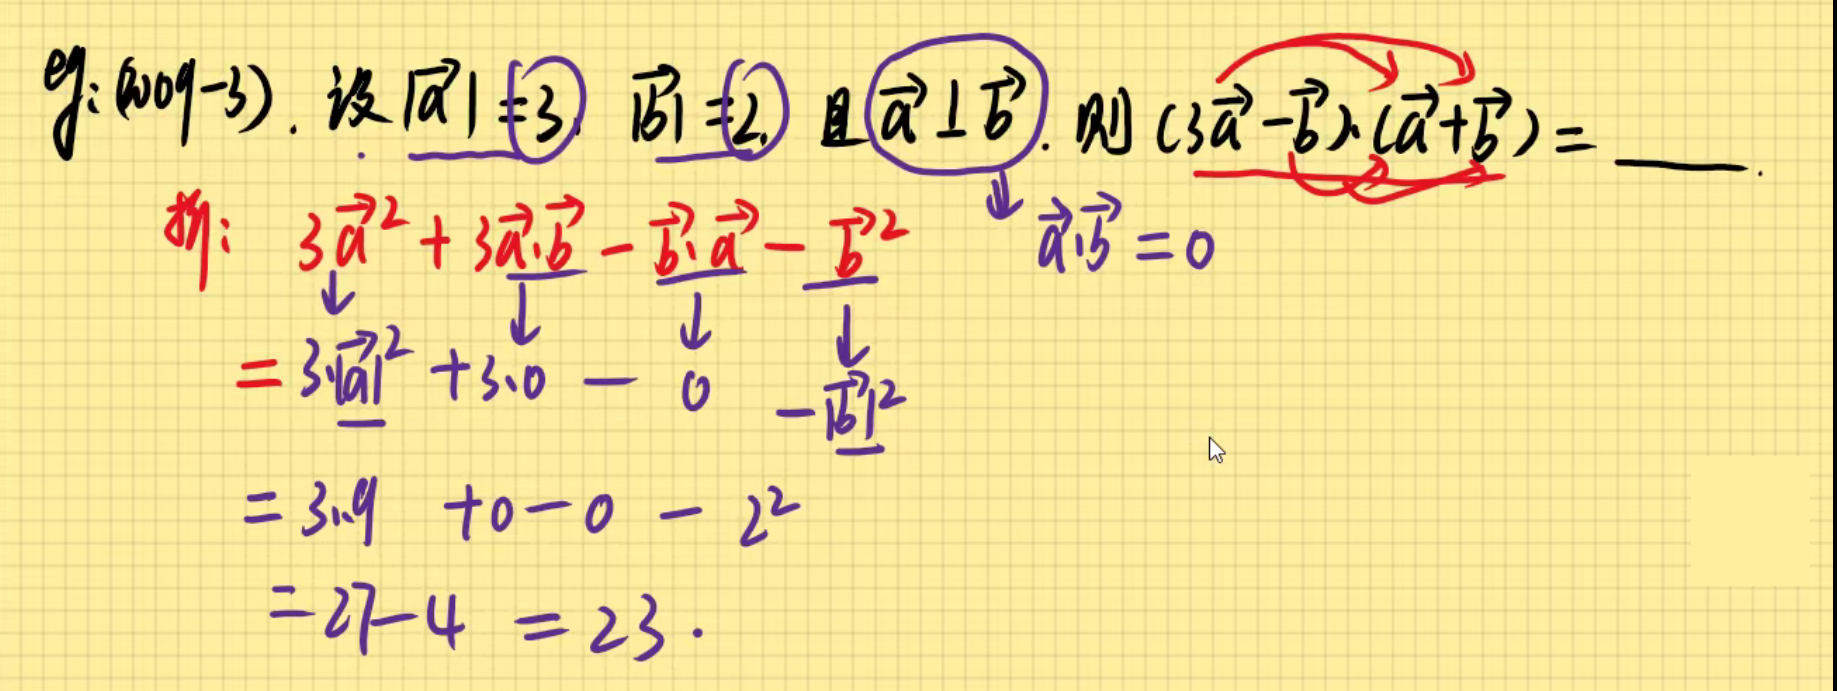 eg:(2009-3). 设|a⃗|=3, |b⃗|=2, 且a⃗⊥b⃗. 则(3a⃗-b⃗)·(a⃗+b⃗)=____.
析: 3a⃗²+3a⃗·b⃗-b⃗·a⃗-b⃗² a⃗·b⃗=0
=3·|a⃗|²+3·0-0-|b⃗|²
=3·9+0-0-2²
=27-4=23.